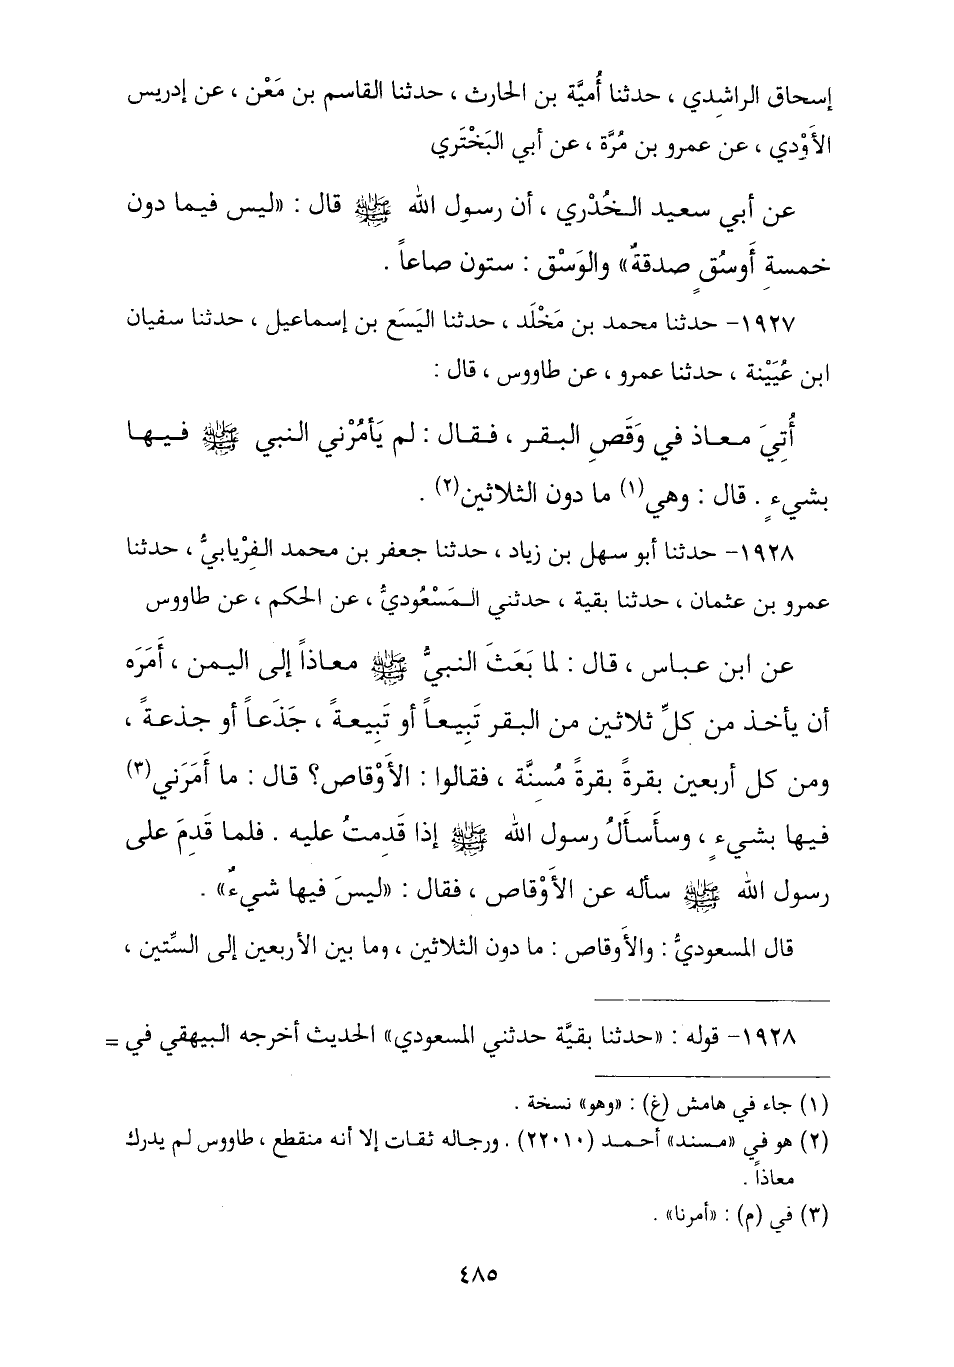 إسحاق الراشدي ، حدثنا أُميَّة بن الحارث ، حدثنا القاسم بن مَعْن ، عن إدريس
الأَوْدي ، عن عمرو بن مُرَّة ، عن أبي البَخْتَري
عن أبي سعيد الخُدْري ، أن رسول الله ﷺ قال : «ليس فيما دون
خمسةِ أَوسُقٍ صدقةٌ» والوَسْق : ستون صاعاً .
١٩٢٧- حدثنا محمد بن مَخْلَد ، حدثنا اليَسَع بن إسماعيل ، حدثنا سفيان
ابن عُيَيْنة ، حدثنا عمرو ، عن طاووس ، قال :
أُتِيَ معاذ في وَقَصِ البقر ، فقال : لم يَأمُرْني النبي ﷺ فيها
بشيءٍ . قال : وهي(١) ما دون الثلاثين(٢) .
١٩٢٨- حدثنا أبو سهل بن زياد ، حدثنا جعفر بن محمد الفِرْيابيُّ ، حدثنا
عمرو بن عثمان ، حدثنا بقية ، حدثني المَسْعُوديُّ ، عن الحكم ، عن طاووس
عن ابن عباس ، قال : لما بَعَثَ النبيُّ ﷺ معاذاً إلى اليمن ، أَمَرَه
أن يأخذ من كلِّ ثلاثين من البقر تَبِيعاً أو تَبِيعةً ، جَذَعاً أو جذعةً ،
ومن كل أربعين بقرةً بقرةً مُسِنَّة ، فقالوا : الأَوْقاص؟ قال : ما أَمَرَني(٣)
فيها بشيءٍ ، وسأَسأَلُ رسول الله ﷺ إذا قَدِمتُ عليه . فلما قَدِمَ على
رسول الله ﷺ سأله عن الأَوْقاص ، فقال : «ليسَ فيها شيءٌ» .
قال المسعوديُّ : والأَوقاص : ما دون الثلاثين ، وما بين الأربعين إلى السِّتين ،
١٩٢٨- قوله : «حدثنا بقيَّة حدثني المسعودي» الحديث أخرجه البيهقي في =
(١) جاء في هامش (غ) : «وهو» نسخة .
(٢) هو في «مسند» أحمد (٢٢٠١٠) . ورجاله ثقات إلا أنه منقطع ، طاووس لم يدرك
معاذاً .
(٣) في (م) : «أمرنا» .
٤٨٥